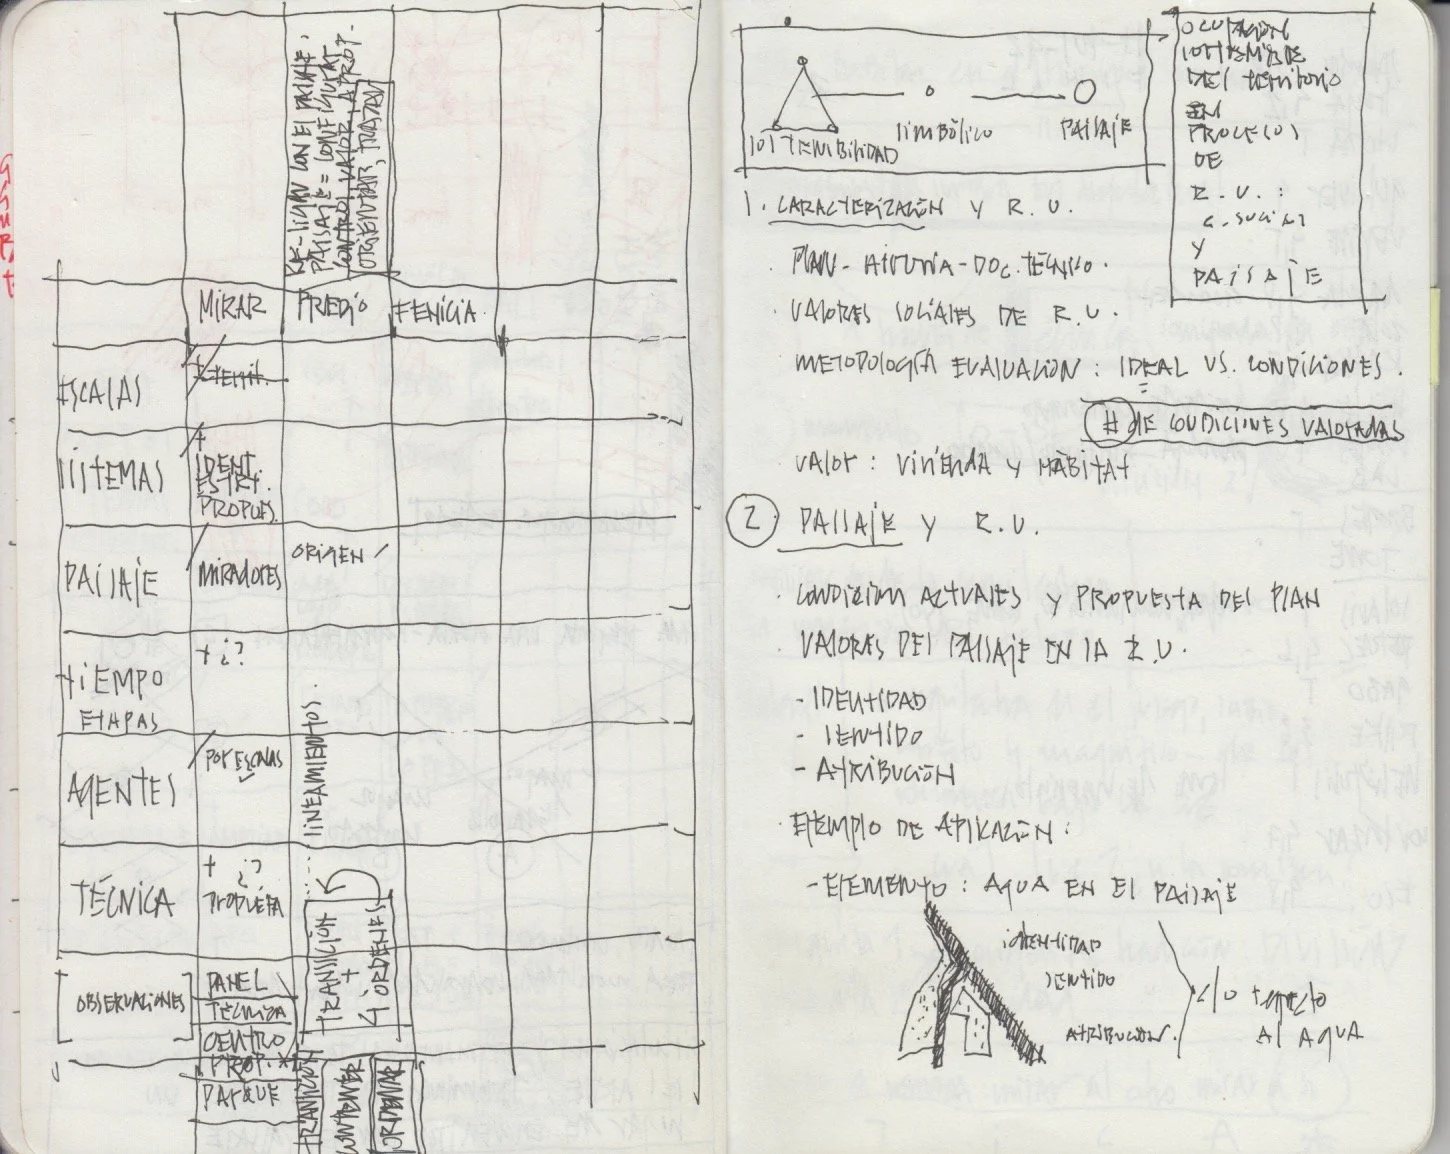 PAISAJE = CONFIGURAT
CONTROL, VALOR, APROP.
ORIENTAR,
MIRAR
PREDIO
FENICIA.
ESCALAS
SISTEMAS
+
IDENT.
ESTRT.
PROPUES.
PAISAJE
MIRADORES
ORIGEN
TIEMPO
ETAPAS
+ ¿?
AGENTES
POR ESCALAS
LINEAMIENTOS
TÉCNICA
+ ¿?
PROPUESTA
TRANSICIÓN
+
4 ORDENES
[OBSERVACIONES]
PANEL
TÉCNICA
CENTRO
PROP. *
PARQUE
TRANSICIÓN
CONTENER
ORDENAR
SOSTENIBILIDAD
SIMBÓLICO
PAISAJE
OCUPACIÓN
SOSTENIBLE
DEL TERRITORIO
EN
PROCESOS
DE
R. U. :
C. SOCIAL
Y
PAISAJE
1. CARACTERIZACIÓN Y R. U.
· PLAN - HISTORIA - DOC. TÉCNICO.
· VALORES SOCIALES DE R. U.
· METODOLOGÍA EVALUACIÓN : IDEAL VS. CONDICIONES.
# DE CONDICIONES VALORADAS
· VALOR : VIVIENDA Y HÁBITAT
2 PAISAJE Y R. U.
· CONDICION ACTUALES Y PROPUESTA DEL PLAN
· VALORAS DEL PAISAJE EN LA R. U.
- IDENTIDAD
- SENTIDO
- ATRIBUCIÓN
· EJEMPLO DE APLICACIÓN :
- ELEMENTO : AGUA EN EL PAISAJE
IDENTIDAD
SENTIDO
ATRIBUCION.
C/U RESPECTO
AL AGUA